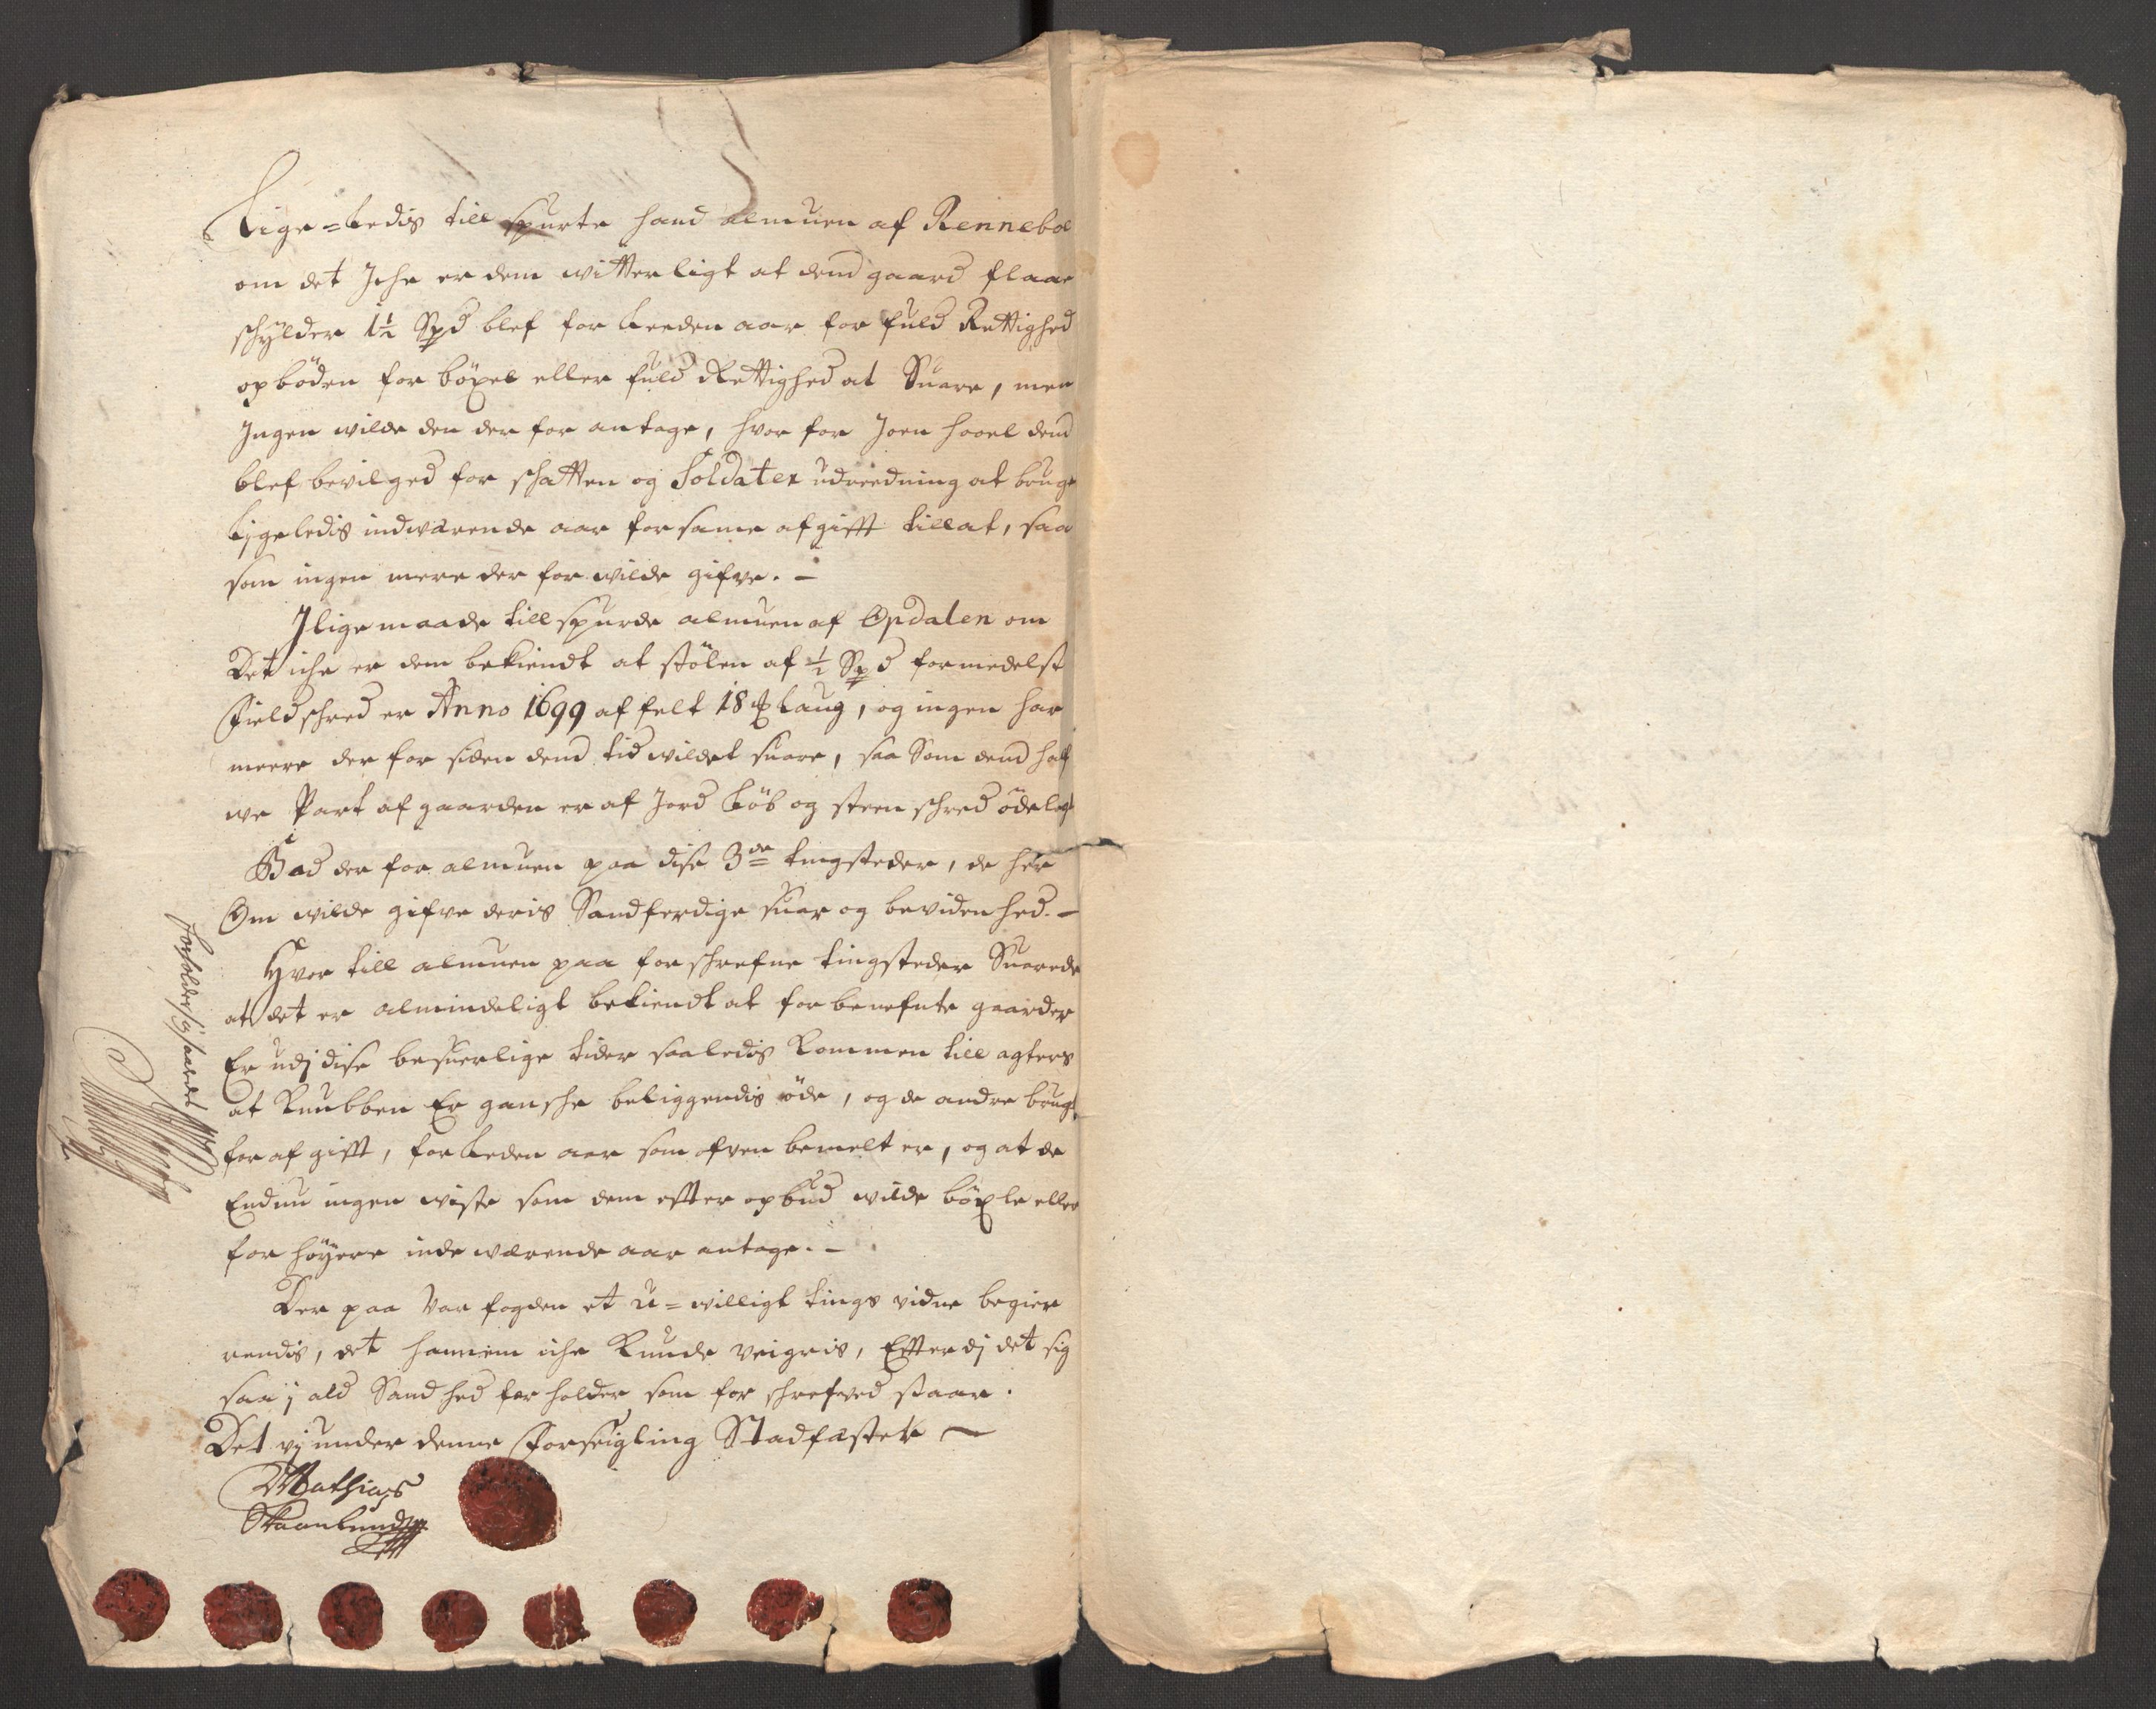 Lige-ledis till spurte hand almuen af Renneboe
om det Iche er dem witterligt at dend gaard flaae
schylder 1½ Spd blef for leeden aar for fuld Rettighed
opböden for böxel eller fuld Rettighed at Suare, men
Ingen wilde den der for antage, hvor for Joen hooel dend
blef bevilged for schatten og Soldater udreedning at bruge
ligeledis indwærende aar for same afgifft tillat, saa
som ingen mere der for wilde gifve. -
I lige maade till spurde almuen af Opdalen om
Det iche er dem bekiendt at stölen af ½ Spd formedelst
Fieldschred er Anno 1699 af felt 18 laug, og ingen har
meere der for siden dend tid wildet suare, saa som dend half
we Part af gaarden er af Jord löb og steen schred ödelagt
Bad der for almuen paa dise 3de tingsteder, de her
Om wilde gifve deris Sandferdige suar og bevidenhed. -
Hvor till almuen paa forschrefne tingsteder Suarede
at det er almindeligt bekiendt at for benefnte gaarder
Er udj dise besuerlige tider saaledis kommen till agters
at knubben Er gansche beliggendis öde, og de andre brugt
for af gifft, forleden aar som ofven bemelt er, og at de
Endnu ingen wiste som dem effter opbud wilde böxle eller
for höyere inde værende aar antage. -
Der paa var fogden et u-willigt tings vidne begier
rendis, det hannem iche kunde veigris, Efferdj det sig
saa j ald Sandhed forholder som for schrefved staar.
Det vj under denne Forseigling Stadfæster -
Mathias
Skaanlund
forholder sig saaledes